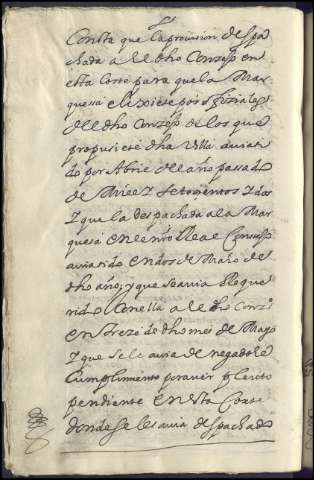 Consta que la provision despa
chada a el dho Conzejo en
esta Corte para que la Mar
quessa elixiese por ofiziales
del dho Conzejo de los que
propusiese dha villa avia si
do por Abril del año passado
de mill y setezientos y dos
y que la despachada a la Mar
quesa en el nro Real Consejo
avia sido en dos de Maio de
dho año, y que se avia Reque
rido Con ella a el dho Conzo
en treze de dho mes de Mayo
y que se le avia denegado el
Cumplimiento por aver pleito
pendiente en esta Corte
donde se les avia despachado